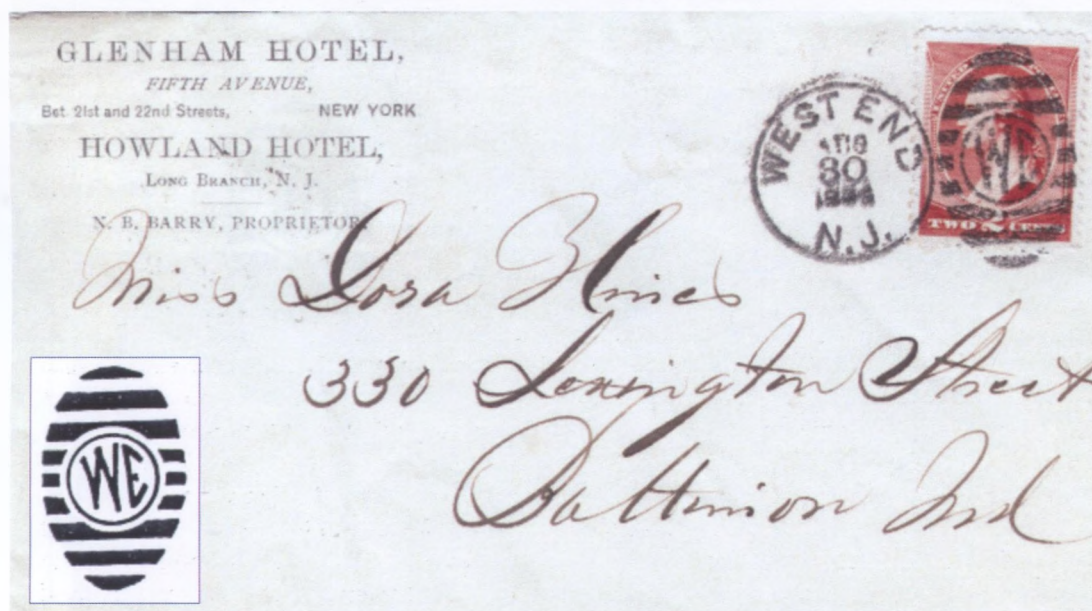 GLENHAM HOTEL,
FIFTH AVENUE,
Bet. 21st and 22nd Streets, NEW YORK
HOWLAND HOTEL,
LONG BRANCH, N. J.
N. B. BARRY, PROPRIETOR.
WEST END
AUG
30
N.J.
WE
TWO 2 CENTS
Miss Dora Hines
330 Lexington Street
Baltimore Md
WE